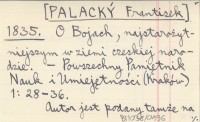 [PALACKÝ František]
1835. O Bojach, najstarożyt-
niejszym w ziemi czeskiej naro-
dzie. — Powszechny Pamiętnik
Nauk i Umiejętności (Kraków)
1: 28-36.
Autor jest podany tamże na